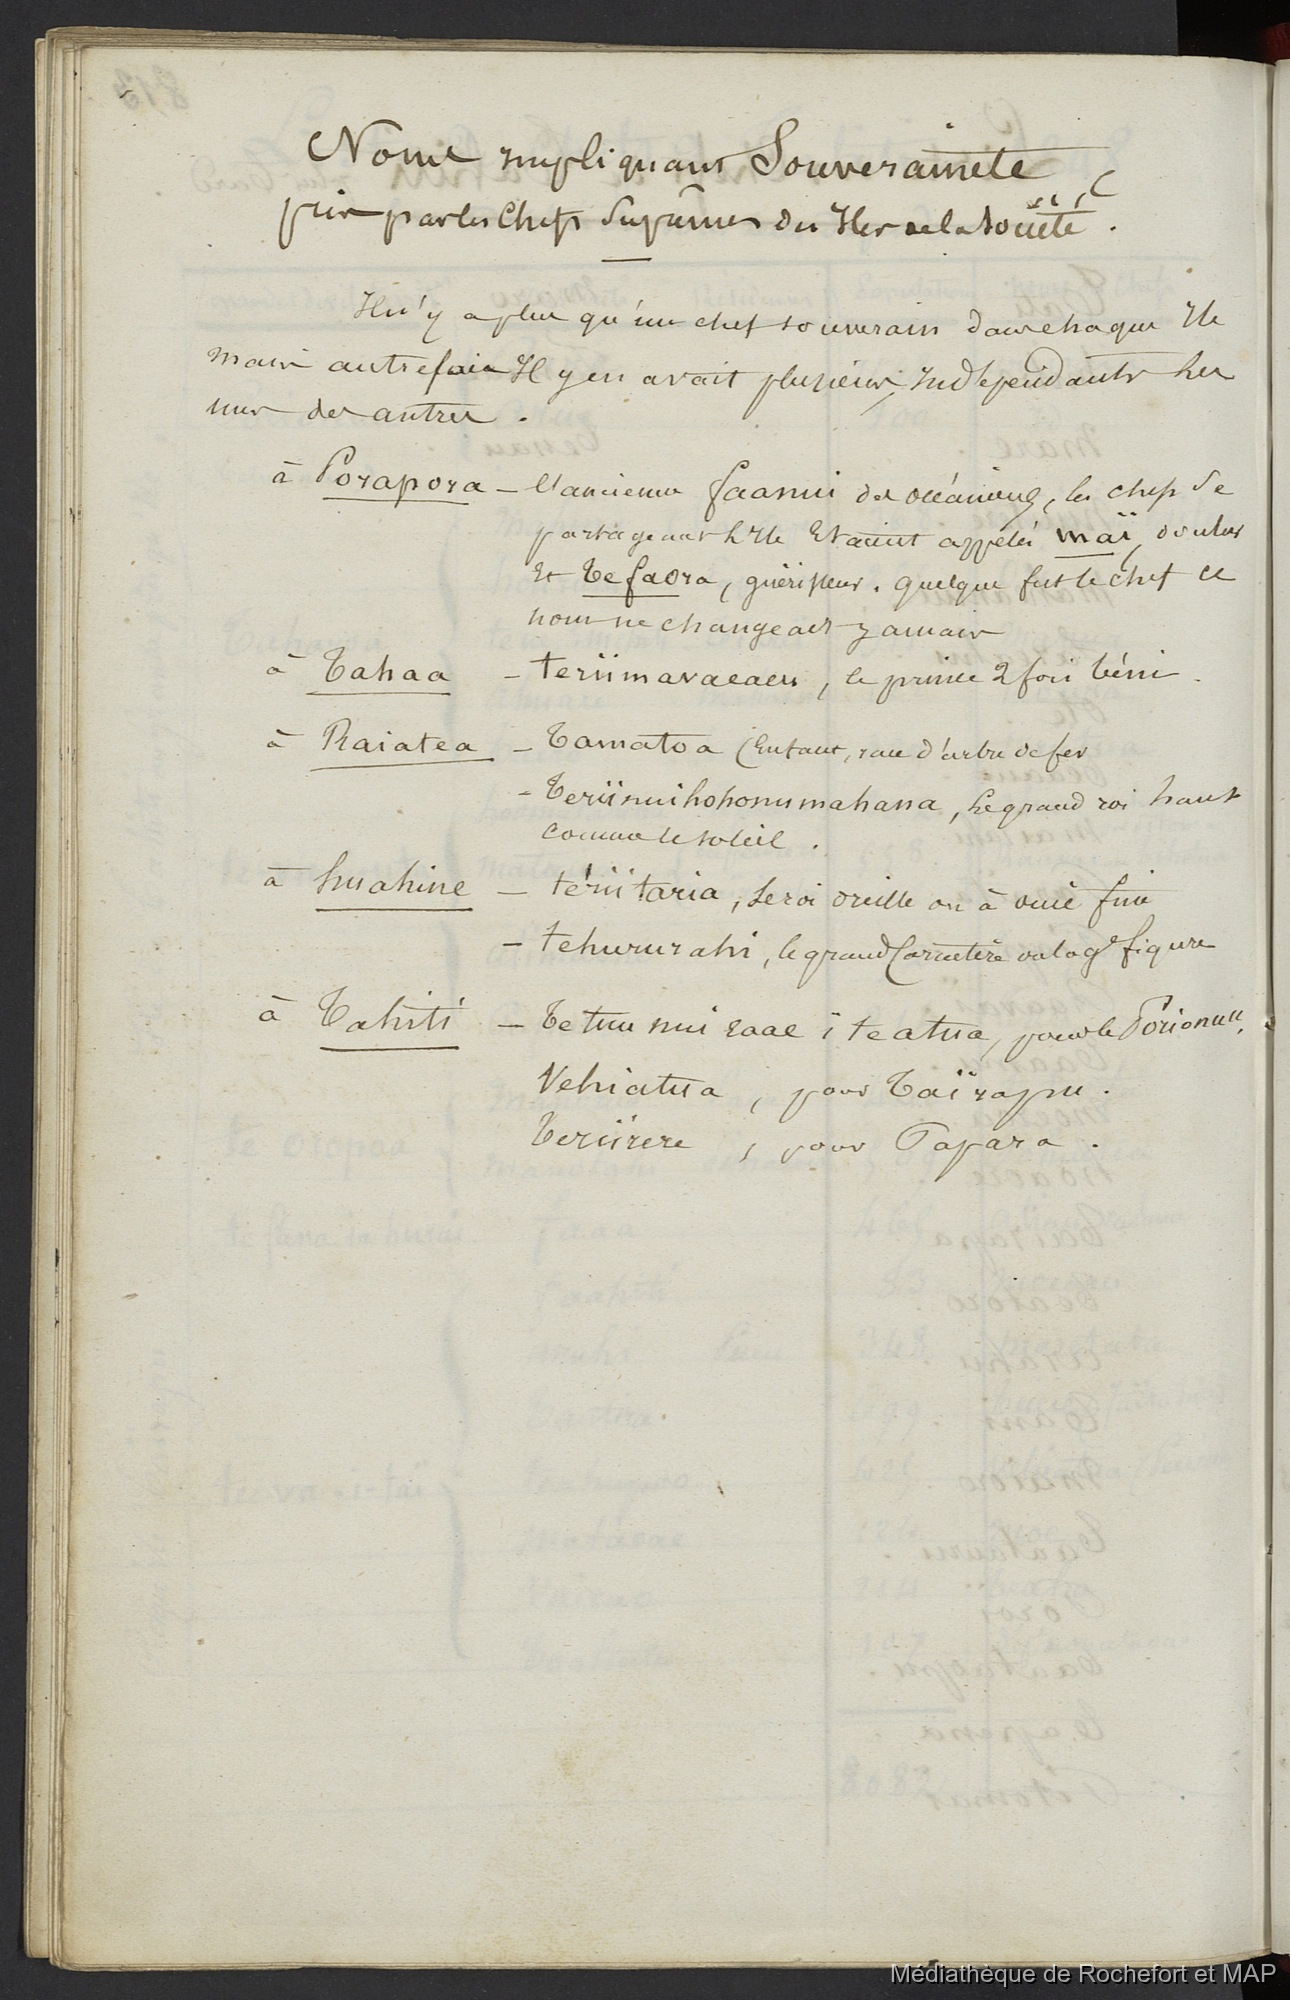 Noms impliquant Souveraineté
pris par les Chefs Suprêmes des Iles de la Société.
Il n'y a plus qu'un chef souverain dans chaque Ile
mais autrefois Il y en avait plusieurs, Indépendants les
uns des autres.
à Porapora - l'ancienne faanui des océaniens, les chefs se
partageant l'Ile Etaient appelés maï, douleur
Et Tefaora, guérisseur. quelque fut le chef ce
nom ne changeait jamais
à Tahaa - teriimavaeaeu, le prince 2 fois béni.
à Raiatea - Tamatoa (Enfant, race d'arbre de fer
- Teriinuihohonumahana, le grand roi haut
comme le soleil.
à huahine - tériitaria, le roi oreille ou à ouïe fine
- tehururahi, le grand Caractère ou la gde figure
à Tahiti - Te tuu nui eaae i te atua, pour le Porionuu,
Vehiatua, pour Taïrapu.
Teriirere, pour Papara.
Médiathèque de Rochefort et MAP